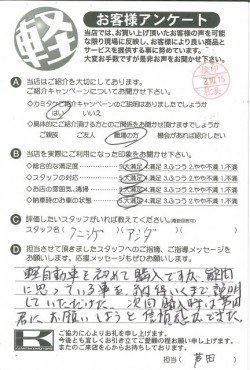 軽
お客様アンケート
当店では、お買い上げ頂いたお客様の声を可能
な限り現場に反映し、お客様により良い商品と
サービスを提供する事に努めています。
大変お手数ですが是非お声をお聞かせ下さい。
A 当店はご紹介を大切にしております。
ご紹介キャンペーンについてお聞かせ下さい。
◇カミタウンご紹介キャンペーンのご説明はありましたでしょうか
はい いいえ
◇具体的にご紹介頂ける方とのご関係をお聞かせ頂けますでしょうか
ご親族 ご友人 職場の方 機会があれば紹介したい
B 当店を実際にご利用になった印象をお聞かせ下さい。
◇総合的な満足度 5.大満足 4.満足 3.ふつう 2.やや不満 1.不満
◇スタッフの対応 5.大満足 4.満足 3.ふつう 2.やや不満 1.不満
◇お店の雰囲気、清掃 5.大満足 4.満足 3.ふつう 2.やや不満 1.不満
◇納車時のお車の状態 5.大満足 4.満足 3.ふつう 2.やや不満 1.不満
C 評価したいスタッフがいれば教えてください。
スタッフ名( )( )
D 担当させて頂きましたスタッフへのご指摘、ご指導メッセージを
お願いします。応援メッセージもぜひお願いします。
軽自動車を初めて購入ですが、疑問
に思っている事を、納得いくまで説明
していただけた。次回購入時は芦田
君にお願いしようと
ご協力に心よりお礼を申し上げます。
今後とも宜しくお引き立てご愛顧の程お願い申し上げます。
またのご来店を心からお待ちしております。
担当( 芦田 )